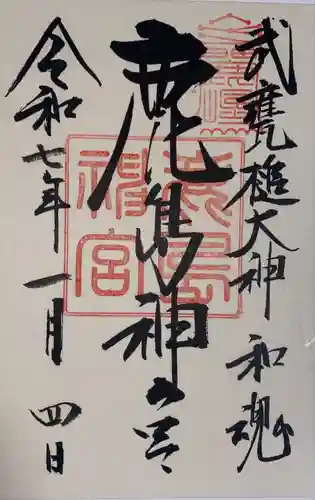 武甕槌大神 和魂
鹿島神宮
令和七年 一月 四日
鹿島神宮